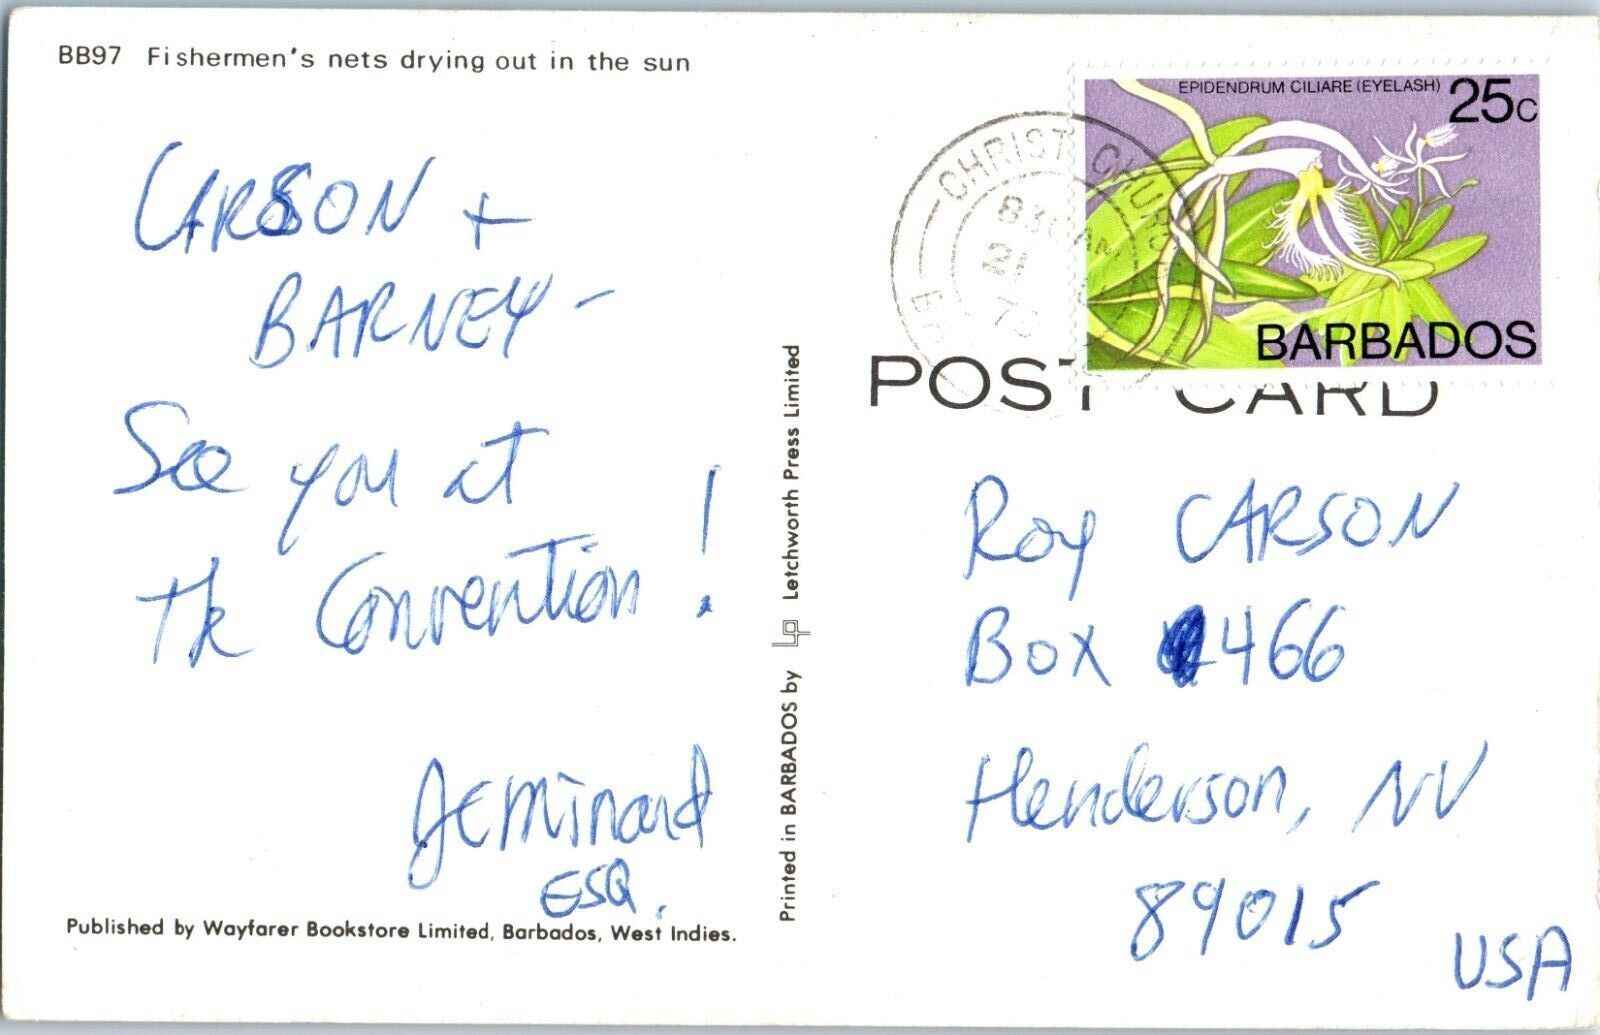 BB97 Fishermen's nets drying out in the sun
CARSON +
BARNEY -
See you at
the Convention!
JEMinard
ESQ.
Published by Wayfarer Bookstore Limited, Barbados, West Indies.
Printed in BARBADOS by LP Letchworth Press Limited
EPIDENDRUM CILIARE (EYELASH) 25c
BARBADOS
CHRIST CHURCH
830AM
21
POST CARD
Roy CARSON
Box 466
Henderson, NV
89015
USA